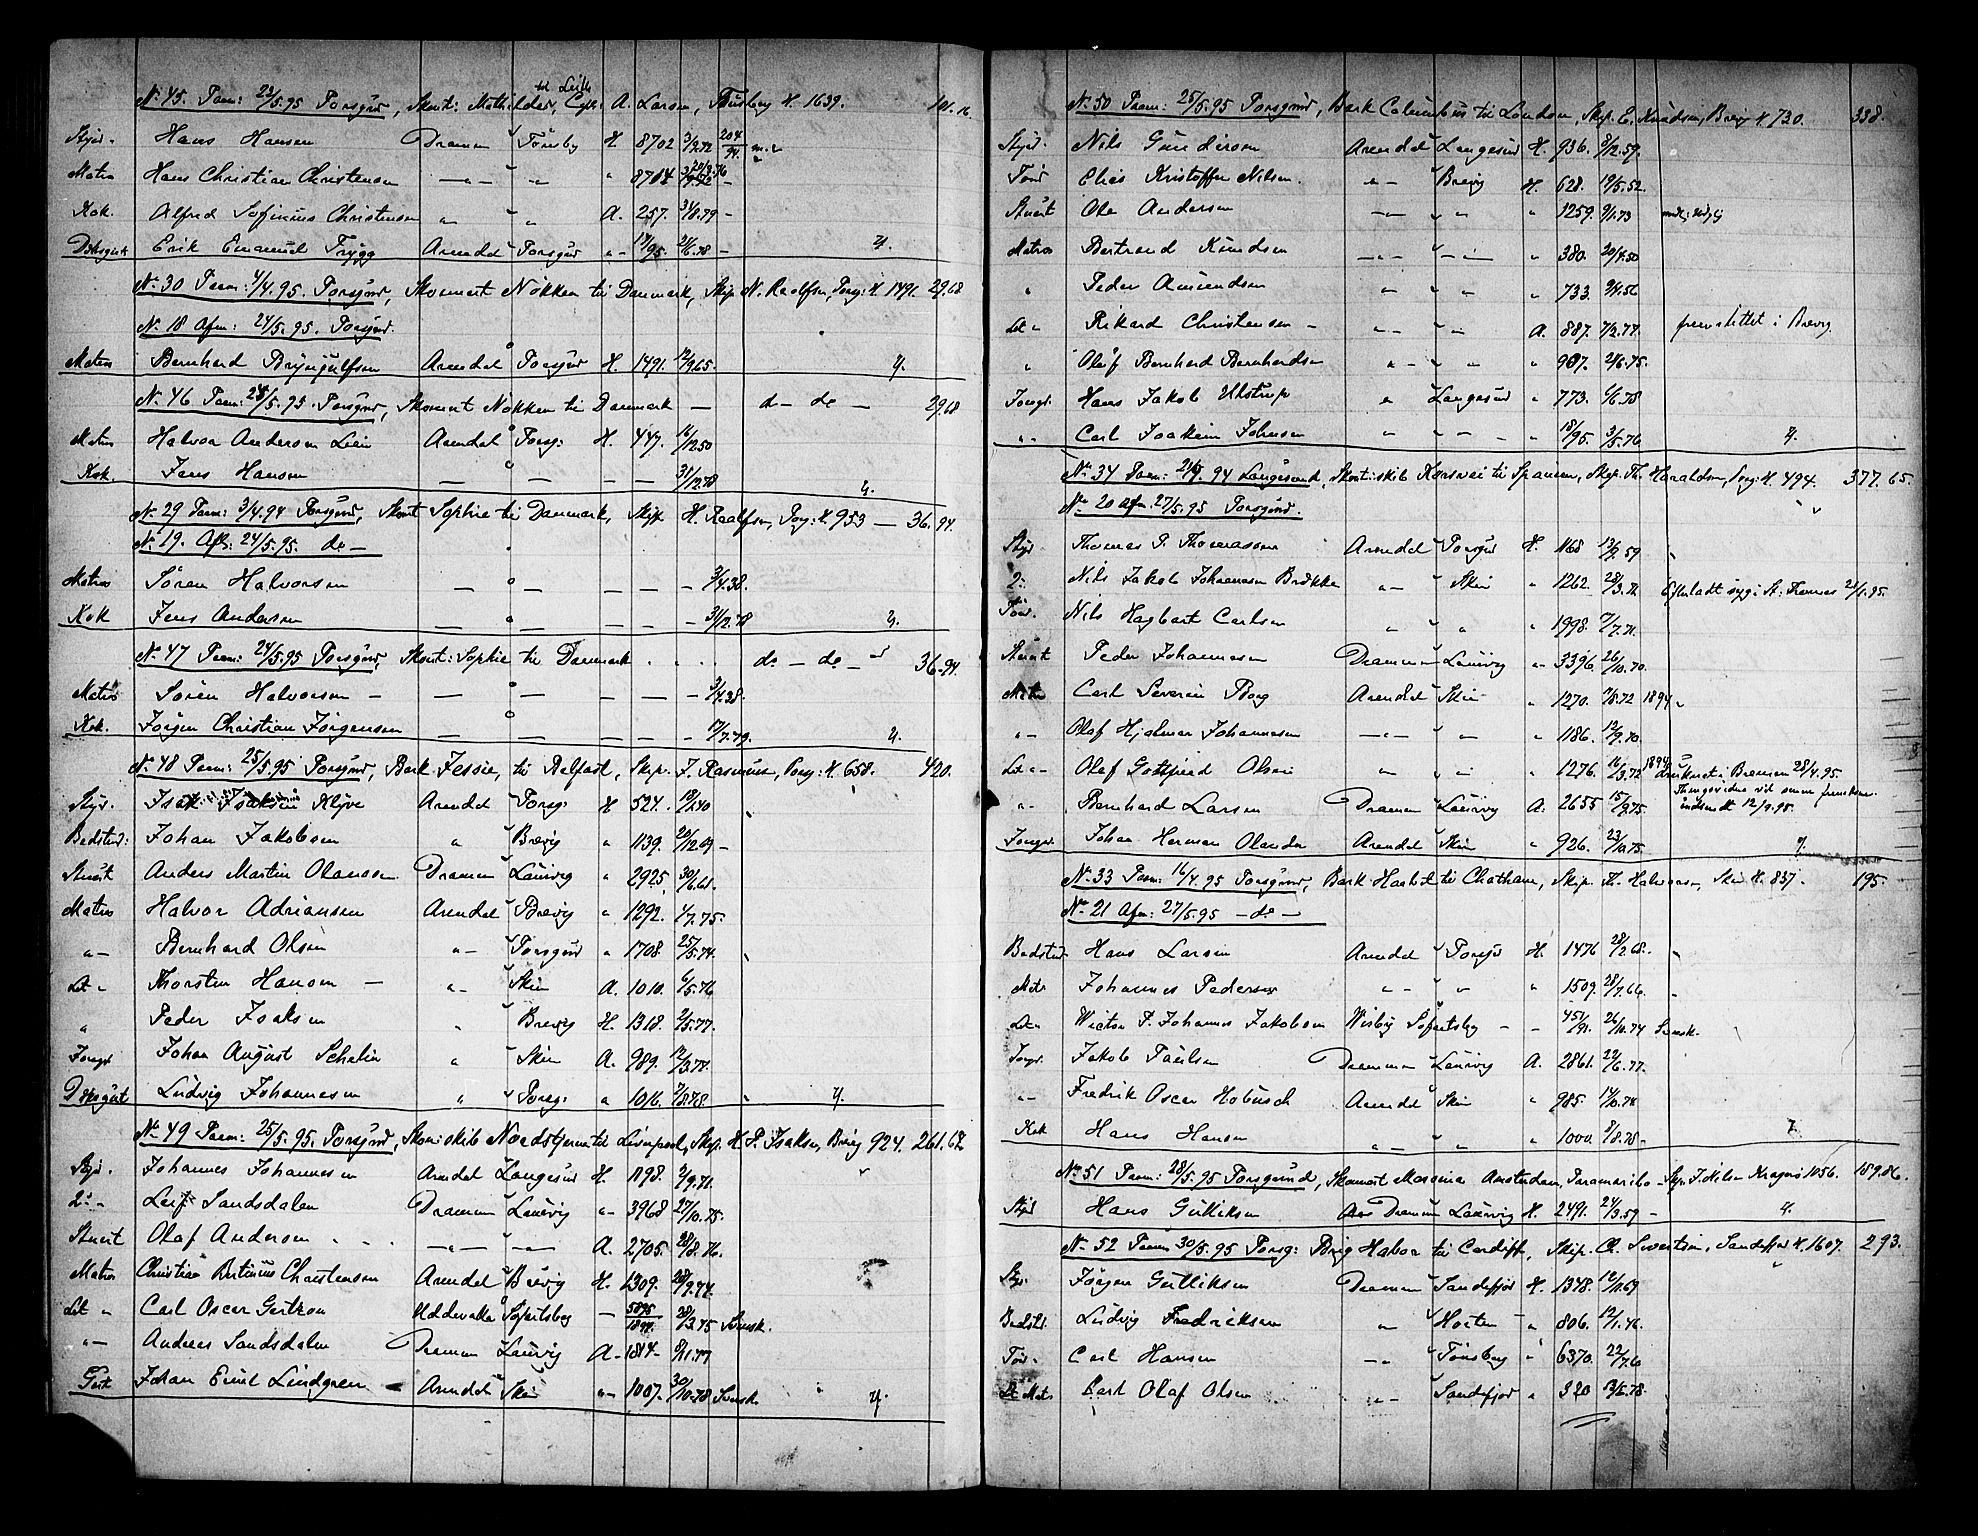 til Leith
No 45. Paam: 23/5.95 Porsgrund, Skont: Mathilde, A. Larsen, Tønsberg H. 1639. 101.16
Styr. Hans Hansen Drammen Tønsby H. 8702 204/94
Matros Hans Christian Christensen — " — " 8714
Kok. Alfred Sofinius Christensen " " A. 257. 31/8.79 —
Dæksgut Erik Emanuel Trygg Arendal Porsgrd 17/95. 21/6.78 —
No 30 Paam: 1/4.95. Porsgrd, Skonnert Nökken til Danmark, Skip. N. Raalfsen, Porsg: H. 1491. 29.68
No 18 Afm: 24/5.95. Porsgrd.
Matros Bernhard Brynjulfsen Arendal Porsgrd H. 1491. 12/9.65.
No 46 Paam: 24/5.95. Porsgrd, Skonnert Nökken til Danmark — do — do — 29.68
Matros Halvor Andersen Lien Arendal Porsg: H. 447. 16/12.50
Kok. Jens Hansen — — — — 31/12.78
No 29 Paam: 3/4.94 Porsgrund, Skont Sophie til Danmark, Skip. H. Raalfsen, Porsg: H. 953 — 36.94
No 19. Afm: 24/5.95. do —
Matros Sören Halvorsen — — — — 3/4.38.
Kok Jens Andersen — — — — 31/12.78
No 47 Paam: 24/5.95 Porsgrund, Skont: Sophie til Danmark . . . do — do — 36.94
Matros Sören Halvorsen — — — — — 3/4.38.
Kok. Jörgen Christian Jörgensen — — — — 17/7.79.
No 48 Paam: 25/5.95 Porsgrund, Bark Jessie, til Belfast, Skip. J. Rasmusen, Porsg: H. 658. 420.
Styr. Isak Isaksen Klyve Arendal Porsg: H 524. 18/2.40
Bedstmd: Johan Jakobsen " Brevig " 1139. 20/12.69 —
Stuert Anders Martin Olausson Drammen Laurvig " 2925. 30/6.61.
Matros Halvor Adriansen Arendal Brevig " 1292. 4/7.75.
" — Bernhard Olsen " — Porsgrund " 1708. 25/5.74.
Let " Thorsten Hansen — " Skien A. 1010. 6/5.76
" Peder Isaksen " Brevig H. 1318. 2/5.77.
Jungm Johan August Schelin " Skien A. 989. 12/3.78.
Dæksgut Ludvig Johannesen " Porsg: " 1016. 7/8.78.
No 49 Paam: 25/5.95. Porsgrund, Skon: skib Nordstjernen til Liverpool, Skip. H. P. Isaksen, Brevig 924. 261.67
Styr. Johannes Johannesen Arendal Langesund H. 1198. 2/9.71.
2. — Leif Sandsdalen Drammen Laurvig " 3968 27/10.75.
Stuert Olaf Andersen — " — — " — A. 2705. 28/8.76.
Matros Christian Bertinius Christensen Arendal Brevig H. 1309. 28/9.74.
Let " Carl Oscar Gertzon Uddevalla Sofartsbog — 5895/1894. 28/3.75 Svensk.
" — Anders Sandsdalen Drammen Laurvig A — 1814 — 8/11.77
Gut Johan Emil Lindgren Arendal Skien " — 1007. 30/10.78 Svensk

No 50 Paam: 25/5.95 Porsgrund, Bark Columbus til London, Skip. E. Knudsen, Brevig H. 730. 338.
Styr. Nils Gundersen Arendal Langesund H. 936. 8/12.59.
Tømd Elias Kristoffer Nilsen. " — Brevig H. 628. 19/5.52.
Stuert Ole Andersen — " — " " " 1259. 9/1.73
Matros Bertrand Knudsen — " — " — " 380. 20/4.50
" Peder Amundsen " — " " " 733. 24/4.56
Let " Rikard Christensen — " — " " A. 887. 7/2.77. fremstillet i Brevig.
" Olaf Bernhard Bernhardsen " — " " " 907. 24/6.75.
Jungm. Hans Jakob Ulstrup " Langesund " 773. 4/6.78
" — Carl Joakim Johnsen " " — " 18/95. 3/5.76
No 34 Paam: 21/9.94 Langesund, Skont: skib Korsvei til Spanien, Skip. Th. Haraldsen, Porsg: H. 494. 377.65.
No 20 Afm. 27/5.95 Porsgrund.
Styr Thomas P. Thomassen Arendal Porsgrd H. 1168 13/7.59
2. Nils Jakob Johannesen Brække " — Skien " 1262. 28/3.72 Efterladt syg i St. Thomas 21/1.95.
Tømd. Nils Hagbart Carlsen " " " 1998. 17/7.71.
Stuert Peder Johannesen Drammen Laurvig " 3396. 26/10.70.
Matros Carl Severin Borg Arendal Skien — " 1270. 7/8.72 1894
" — Olaf Hjalmar Johannesen — " — " " 1186. 12/9.70.
Let " — Olaf Gottfried Olsen " — " " 1276. 16/3.72 1894 druknet i Bremen 28/4.95.
" Bernhard Larsen Drammen Laurvig A. 2655 15/9.75. indsendt 12/9.95.
Jungm. Johan Herman Olander Arendal Skien " 926. 23/10.75.
No 33 Paam: 16/4.95 Porsgrund, Bark Harbit til Chatham, Skip. Th. Halvorsen, Skien H. 837. 195.
No 21 Afm: 27/5.95 — do —
Bedstmd. Hans Larsen Arendal Porsgrd H. 1476 28/2.68.
Matr. Johannes Pedersen " — " " 1509. 28/7.66.
Let " Victor P. Johannes Jakobsen Wisby Sofartsbg — — 451/91. 26/10.74 Svensk.
Jungm. Jakob Paulsen Drammen Laurvig A. 2861. 22/6.77.
" — Fredrik Oscar Hobusch Arendal Skien " 985. 14/10.78
Kok Hans Hansen " " " 1000. 8/8.75 —
No 51 Paam: 28/5.95 Porsgrund, Skonnert Marsina Amsterdam, Paramaribo — Skip. J. Nilsen Kragerø 1056. 159.86.
Styr Hans Gulliksen Drammen Laurvig H. 2491. 24/3.59 —
No 52 Paam: 30/5.95 Porsg: Brig Halvor til Cardiff, Skip. Ch. Sivertsen, Sandefjord H. 1607. 293.
Styr. Jørgen Gulliksen Drammen Sandefjord H. 1348. 12/11.69
Bedstm. Ludvig Fredriksen " — Horten — " 806. 12/1.46.
Tømd. Carl Hansen — " Tønsberg " 6370. 22/7.60
Matr Carl Olaf Olsen " — Sandefjord " 320 13/5.78.